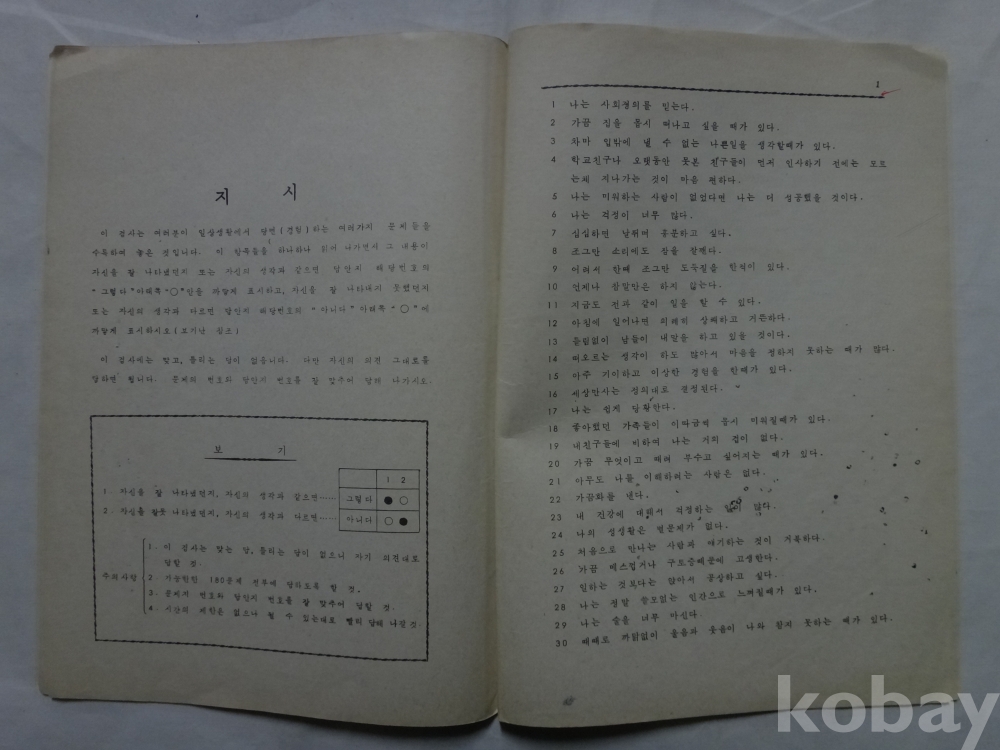 지 시
이 검사는 여러분이 일상생활에서 당면(경험)하는 여러가지 문제들을
수록하여 놓은 것입니다. 이 항목들을 하나하나 읽어 나가면서 그 내용이
자신을 잘 나타냈던지 또는 자신의 생각과 같으면 답안지 해당번호의
"그렇다"아래쪽 "○"안을 까맣게 표시하고, 자신을 잘 나타내지 못했던지
또는 자신의 생각과 다르면 답안지 해당번호의 "아니다"아래쪽 "○"에
까맣게 표시하시오(보기난 참조)
이 검사에는 맞고, 틀리는 답이 없읍니다. 다만 자신의 의견 그대로를
답하면 됩니다. 문제의 번호와 답안지 번호를 잘 맞추어 답해 나가시오.
보 기
1 2
1. 자신을 잘 나타냈던지, 자신의 생각과 같으면…… 그렇다 ● ○
2. 자신을 잘못 나타냈던지, 자신의 생각과 다르면…… 아니다 ○ ●
주의사항
1. 이 검사는 맞는 답, 틀리는 답이 없으니 자기 의견대로
답할 것.
2. 가능한한 180문제 전부에 답하도록 할 것.
3. 문제지 번호와 답안지 번호를 잘 맞추어 답할 것.
4. 시간의 제한은 없으나 될 수 있는대로 빨리 답해 나갈것.
1
1 나는 사회정의를 믿는다.
2 가끔 집을 몹시 떠나고 싶을 때가 있다.
3 차마 입밖에 낼 수 없는 나쁜일을 생각할때가 있다.
4 학교친구나 오랫동안 못본 친구들이 먼저 인사하기 전에는 모르
는체 지나가는 것이 마음 편하다.
5 나를 미워하는 사람이 없었다면 나는 더 성공했을 것이다.
6 나는 걱정이 너무 많다.
7 심심하면 날뛰며 흥분하고 싶다.
8 조그만 소리에도 잠을 잘깬다.
9 어려서 한때 조그만 도둑질을 한적이 있다.
10 언제나 참말만은 하지 않는다.
11 지금도 전과 같이 일을 할 수 있다.
12 아침에 일어나면 의례히 상쾌하고 거뜬하다.
13 틀림없이 남들이 내말을 하고 있을 것이다.
14 떠오르는 생각이 하도 많아서 마음을 정하지 못하는 때가 많다.
15 아주 기이하고 이상한 경험을 한때가 있다.
16 세상만사는 정의대로 결정된다.
17 나는 쉽게 당황한다.
18 좋아했던 가족들이 이따금씩 몹시 미워질때가 있다.
19 내친구들에 비하여 나는 거의 겁이 없다.
20 가끔 무엇이고 때려 부수고 싶어지는 때가 있다.
21 아무도 나를 이해하려는 사람은 없다.
22 가끔화를 낸다.
23 내 건강에 대해서 걱정하는 일이 많다.
24 나의 성생활은 별문제가 없다.
25 처음으로 만나는 사람과 얘기하는 것이 거북하다.
26 가끔 메스껍거나 구토증때문에 고생한다.
27 일하는 것보다는 앉아서 공상하고 싶다.
28 나는 정말 쓸모없는 인간으로 느껴질때가 있다.
29 나는 술을 너무 마신다.
30 때때로 까닭없이 울음과 웃음이 나와 참지 못하는 때가 있다.
kobay